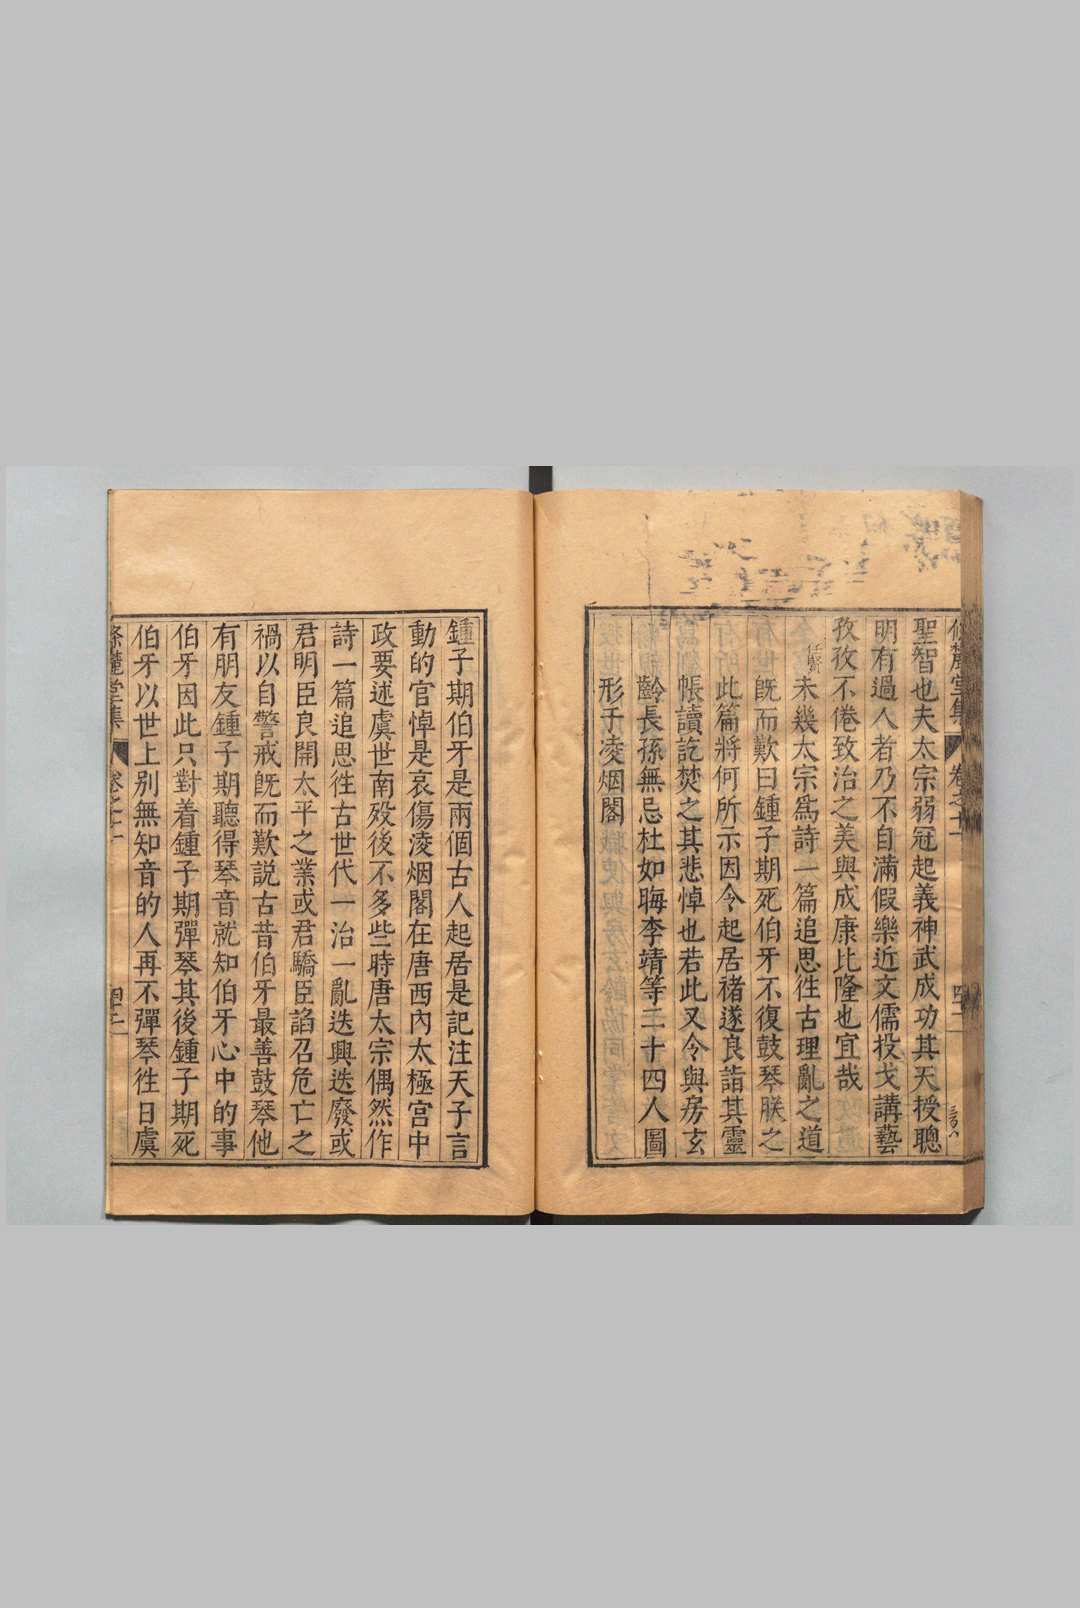 條麓堂集 卷之十一
聖智也夫太宗弱冠起義神武成功其天授聰
明有過人者乃不自滿假樂近文儒投戈講藝
孜孜不倦致治之美與成康比隆也宜哉
任賢
未幾太宗為詩一篇追思徃古理亂之道
既而歎曰鍾子期死伯牙不復鼓琴朕之
此篇將何所示因令起居褚遂良詣其靈
帳讀訖焚之其悲悼也若此又令與房玄
齡長孫無忌杜如晦李靖等二十四人圖
形于凌烟閣
鍾子期伯牙是兩個古人起居是記注天子言
動的官悼是哀傷凌烟閣在唐西內太極宫中
政要述虞世南歿後不多些時唐太宗偶然作
詩一篇追思徃古世代一治一亂迭興迭廢或
君明臣良開太平之業或君驕臣諂召危亡之
禍以自警戒既而歎説古昔伯牙最善鼓琴他
有朋友鍾子期聽得琴音就知伯牙心中的事
伯牙因此只對着鍾子期彈琴其後鍾子期死
伯牙以世上别無知音的人再不彈琴徃日虞
條麓堂集 卷之十一 四十二